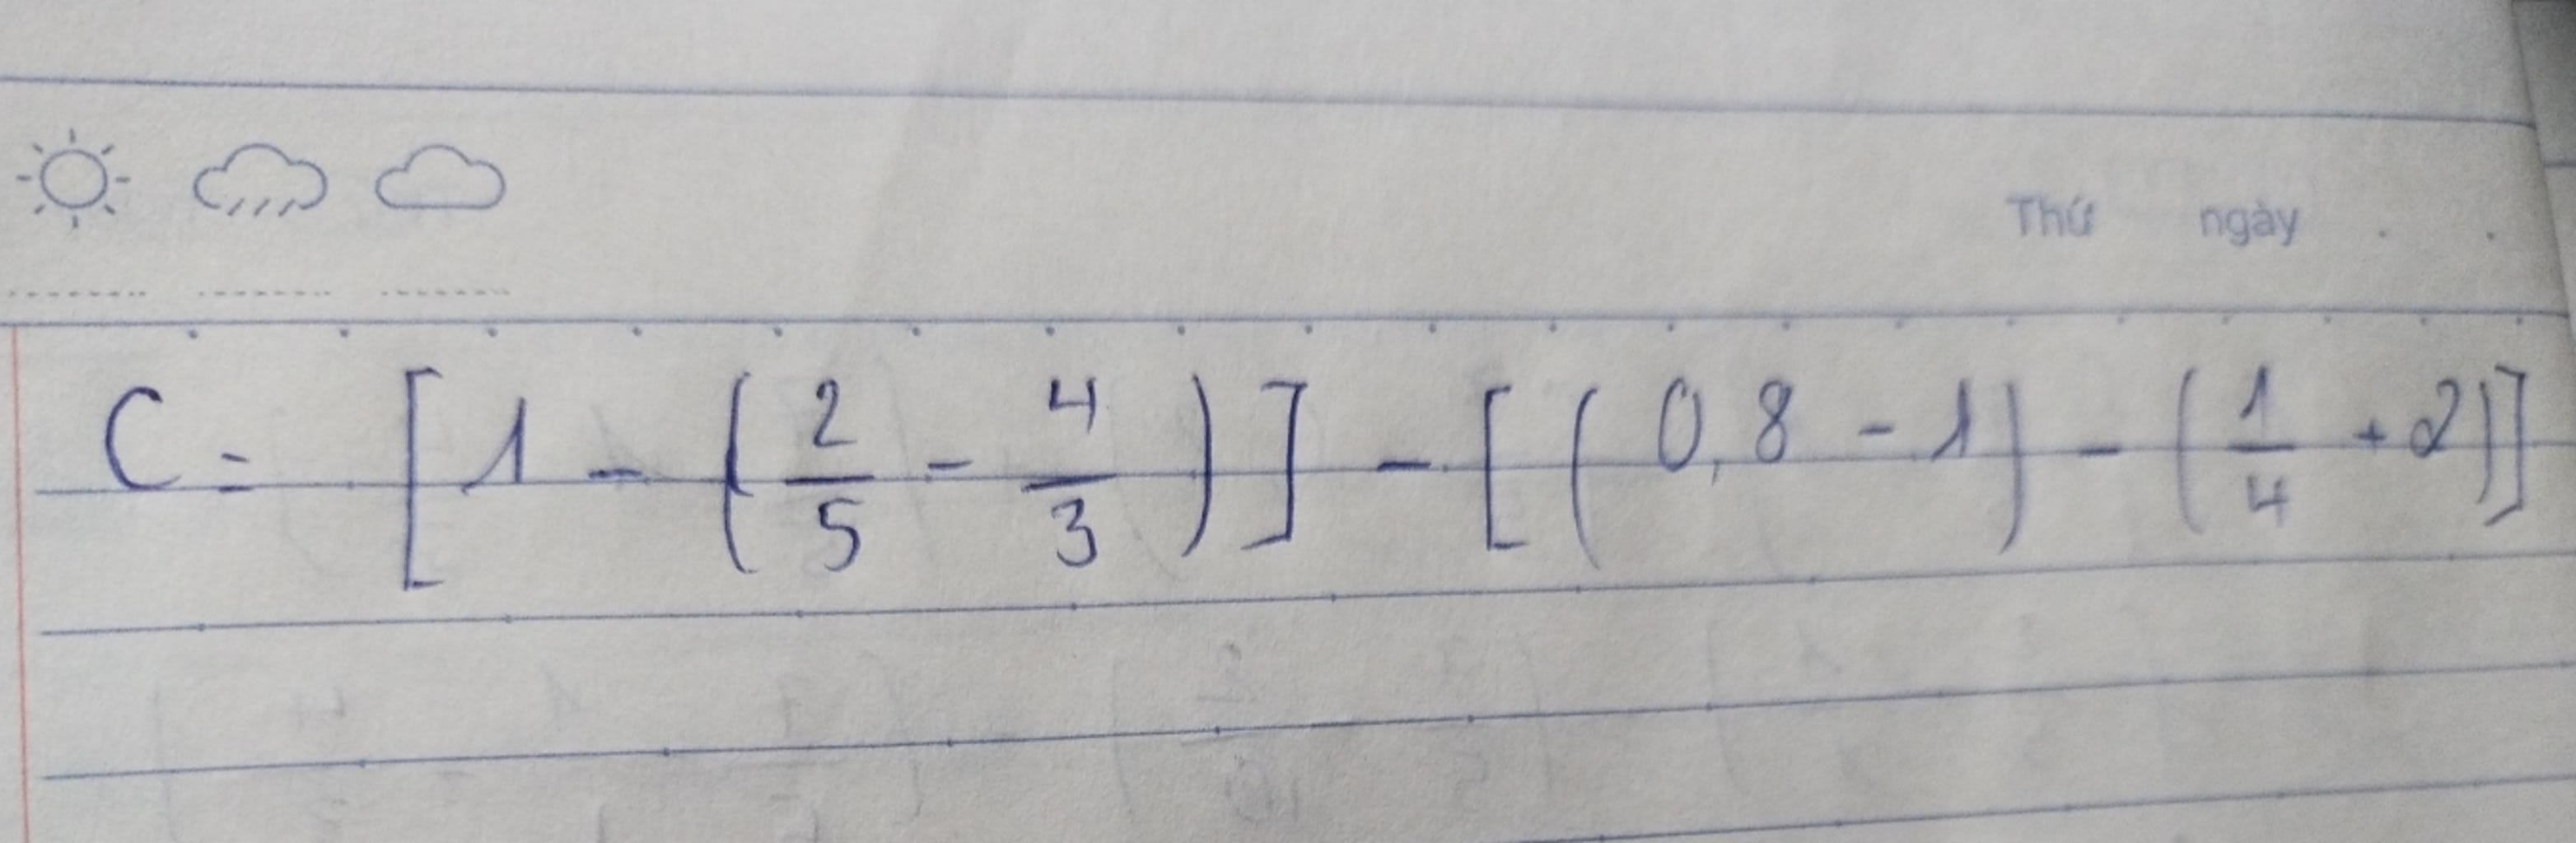 Thứ ngày . .
C = [1 - (2/5 - 4/3)] - [(0,8 - 1) - (1/4 + 2)]